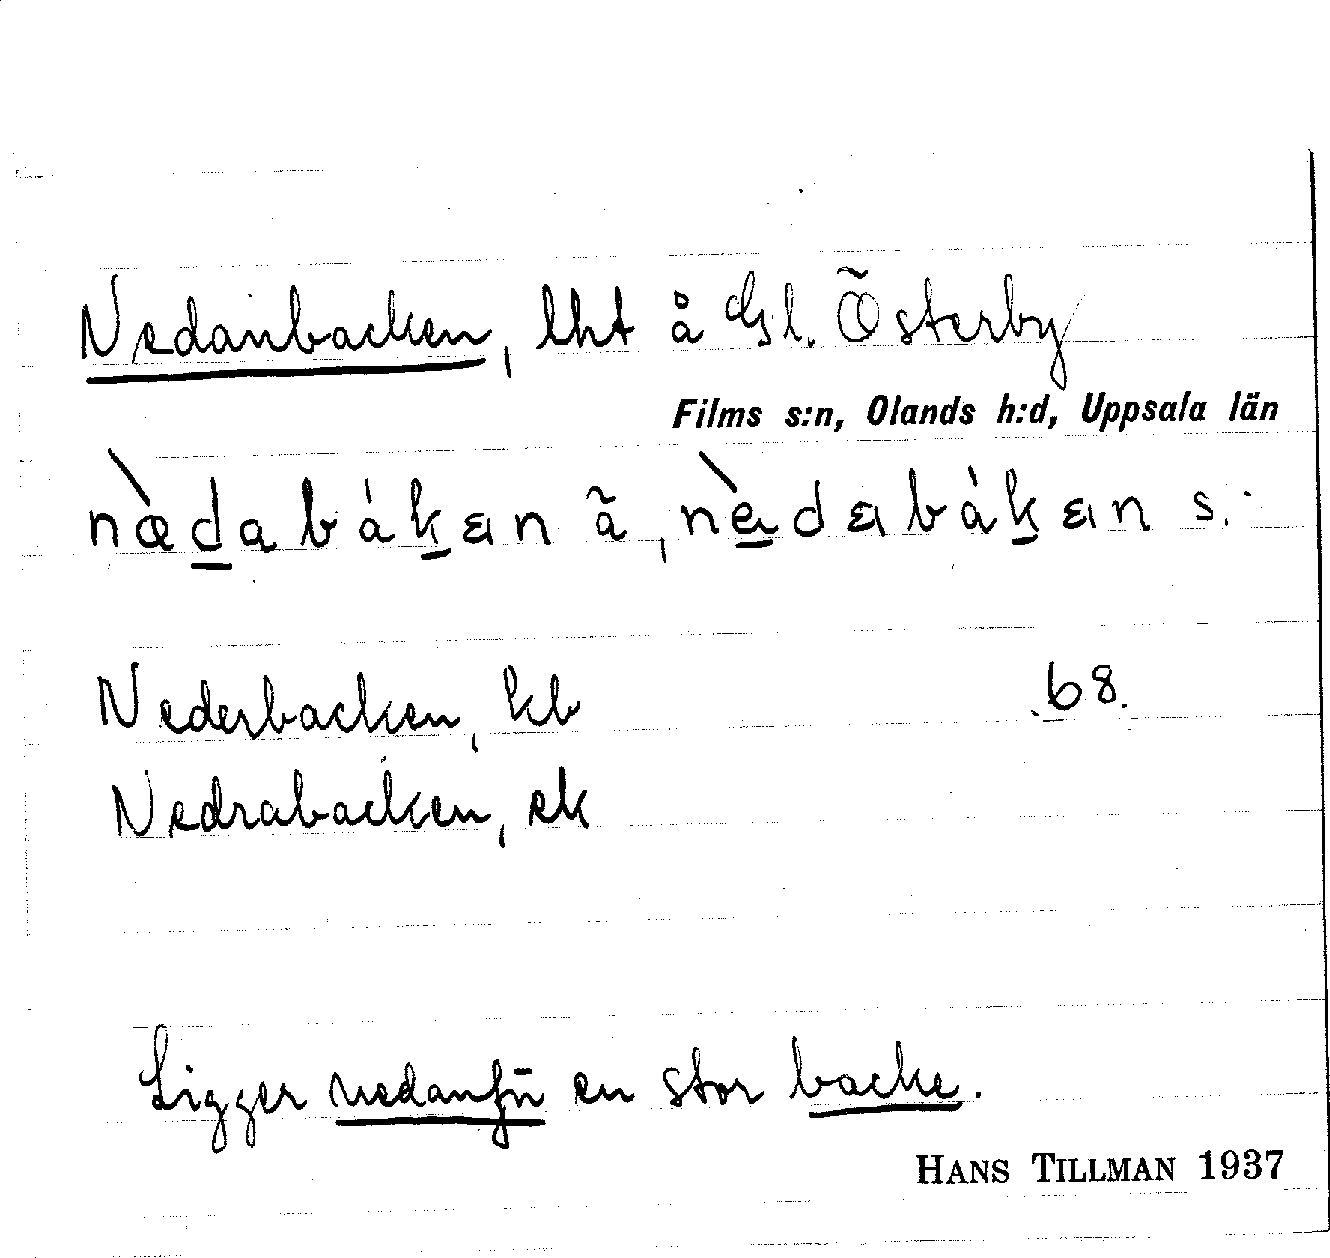 Nedanbacken, lht å Gl. Österby
Films s:n, Olands h:d, Uppsala län
næ̀dabákɛn ã, nɛ̀dɛbàkɛn s.
Nederbacken, kb 68.
Nedrabacken, ek
Ligger nedanfü en stor backe.
HANS TILLMAN 1937